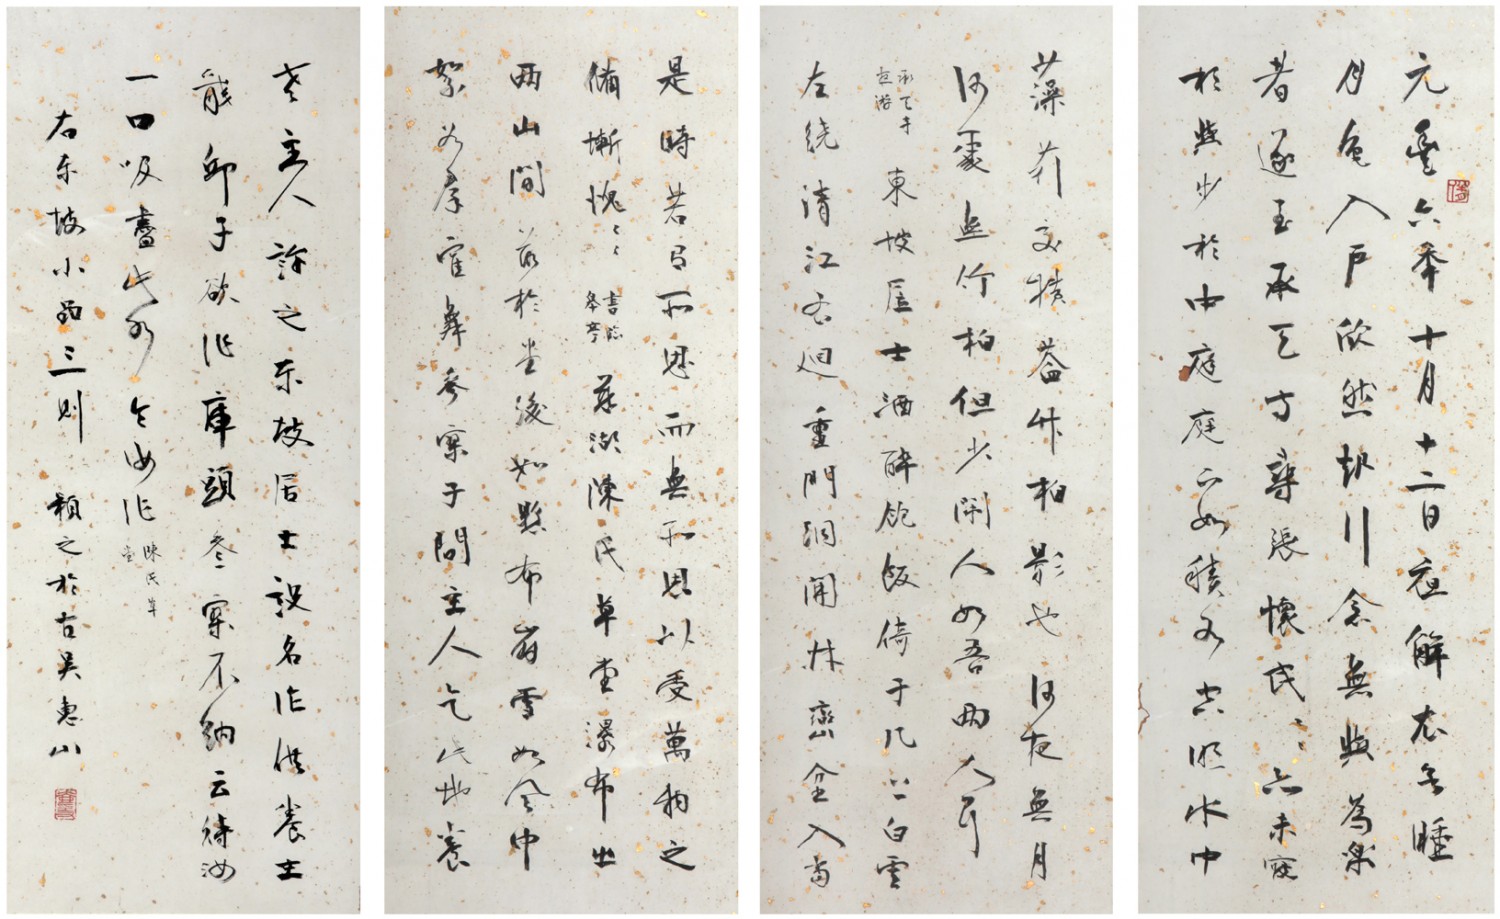 元豐六年十月十二日夜解衣欲睡
月色入户欣然起行念無與為樂
者遂至承天寺尋張懷民〻亦未寢
相與步於中庭庭下如積水空明水中
藻荇交横蓋竹柏影也何夜無月
何處無竹柏但少閑人如吾兩人耳
承天寺夜游 東坡居士酒醉飽飯倚于几上白雲
左绕清江右迴重門洞開林巒坌入當
是時若有所思而無所思以受萬物之
備慚愧〻〻 書臨皋亭 慈湖陳氏草堂瀑布出
兩山間落於堂後如懸布崩雪如風中
絮如羣鶴舞參寥子問主人乞此地養
老主人許之東坡居士投名作供養主
龍邱子欲作庫頭參寥不納云待汝
一口吸盡此水令汝作 陳氏草堂
右東坡小品三則 穎之於古吴惠山